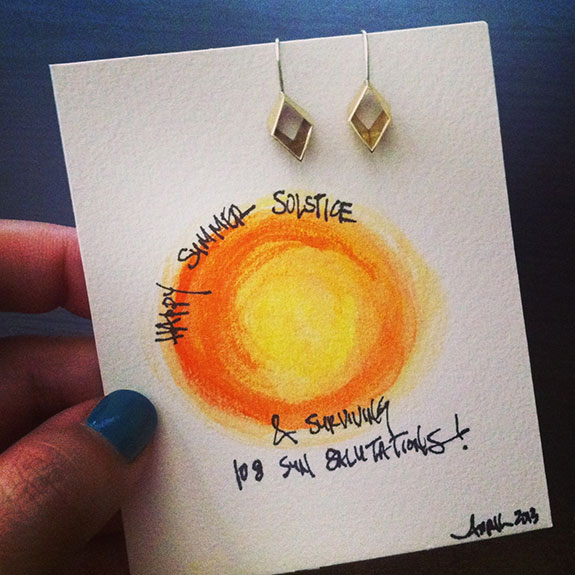 HAPPY SUMMER SOLSTICE
& SURVIVING
108 SUN SALUTATIONS!
APRIL 2013